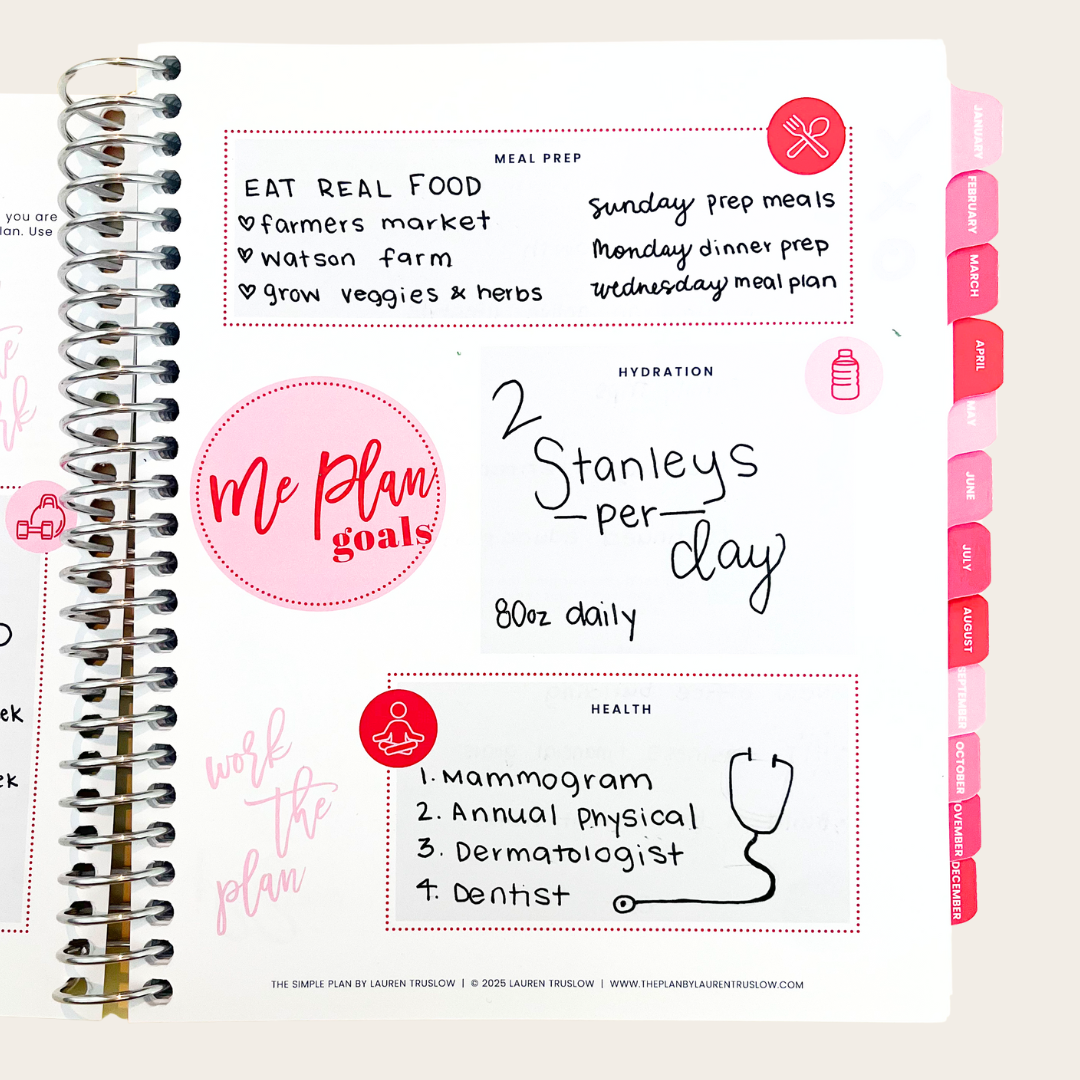 you are
lan. Use
ek
ek
MEAL PREP
EAT REAL FOOD
farmers market
watson farm
grow veggies & herbs
sunday prep meals
Monday dinner prep
wednesday meal plan
Me Plan
goals
HYDRATION
2
Stanleys
-per-
day
80oz daily
HEALTH
1. Mammogram
2. Annual Physical
3. Dermatologist
4. Dentist
work
the
plan
THE SIMPLE PLAN BY LAUREN TRUSLOW | © 2025 LAUREN TRUSLOW | WWW.THEPLANBYLAURENTRUSLOW.COM
JANUARY
FEBRUARY
MARCH
APRIL
MAY
JUNE
JULY
AUGUST
SEPTEMBER
OCTOBER
OVEMBER
DECEMBER